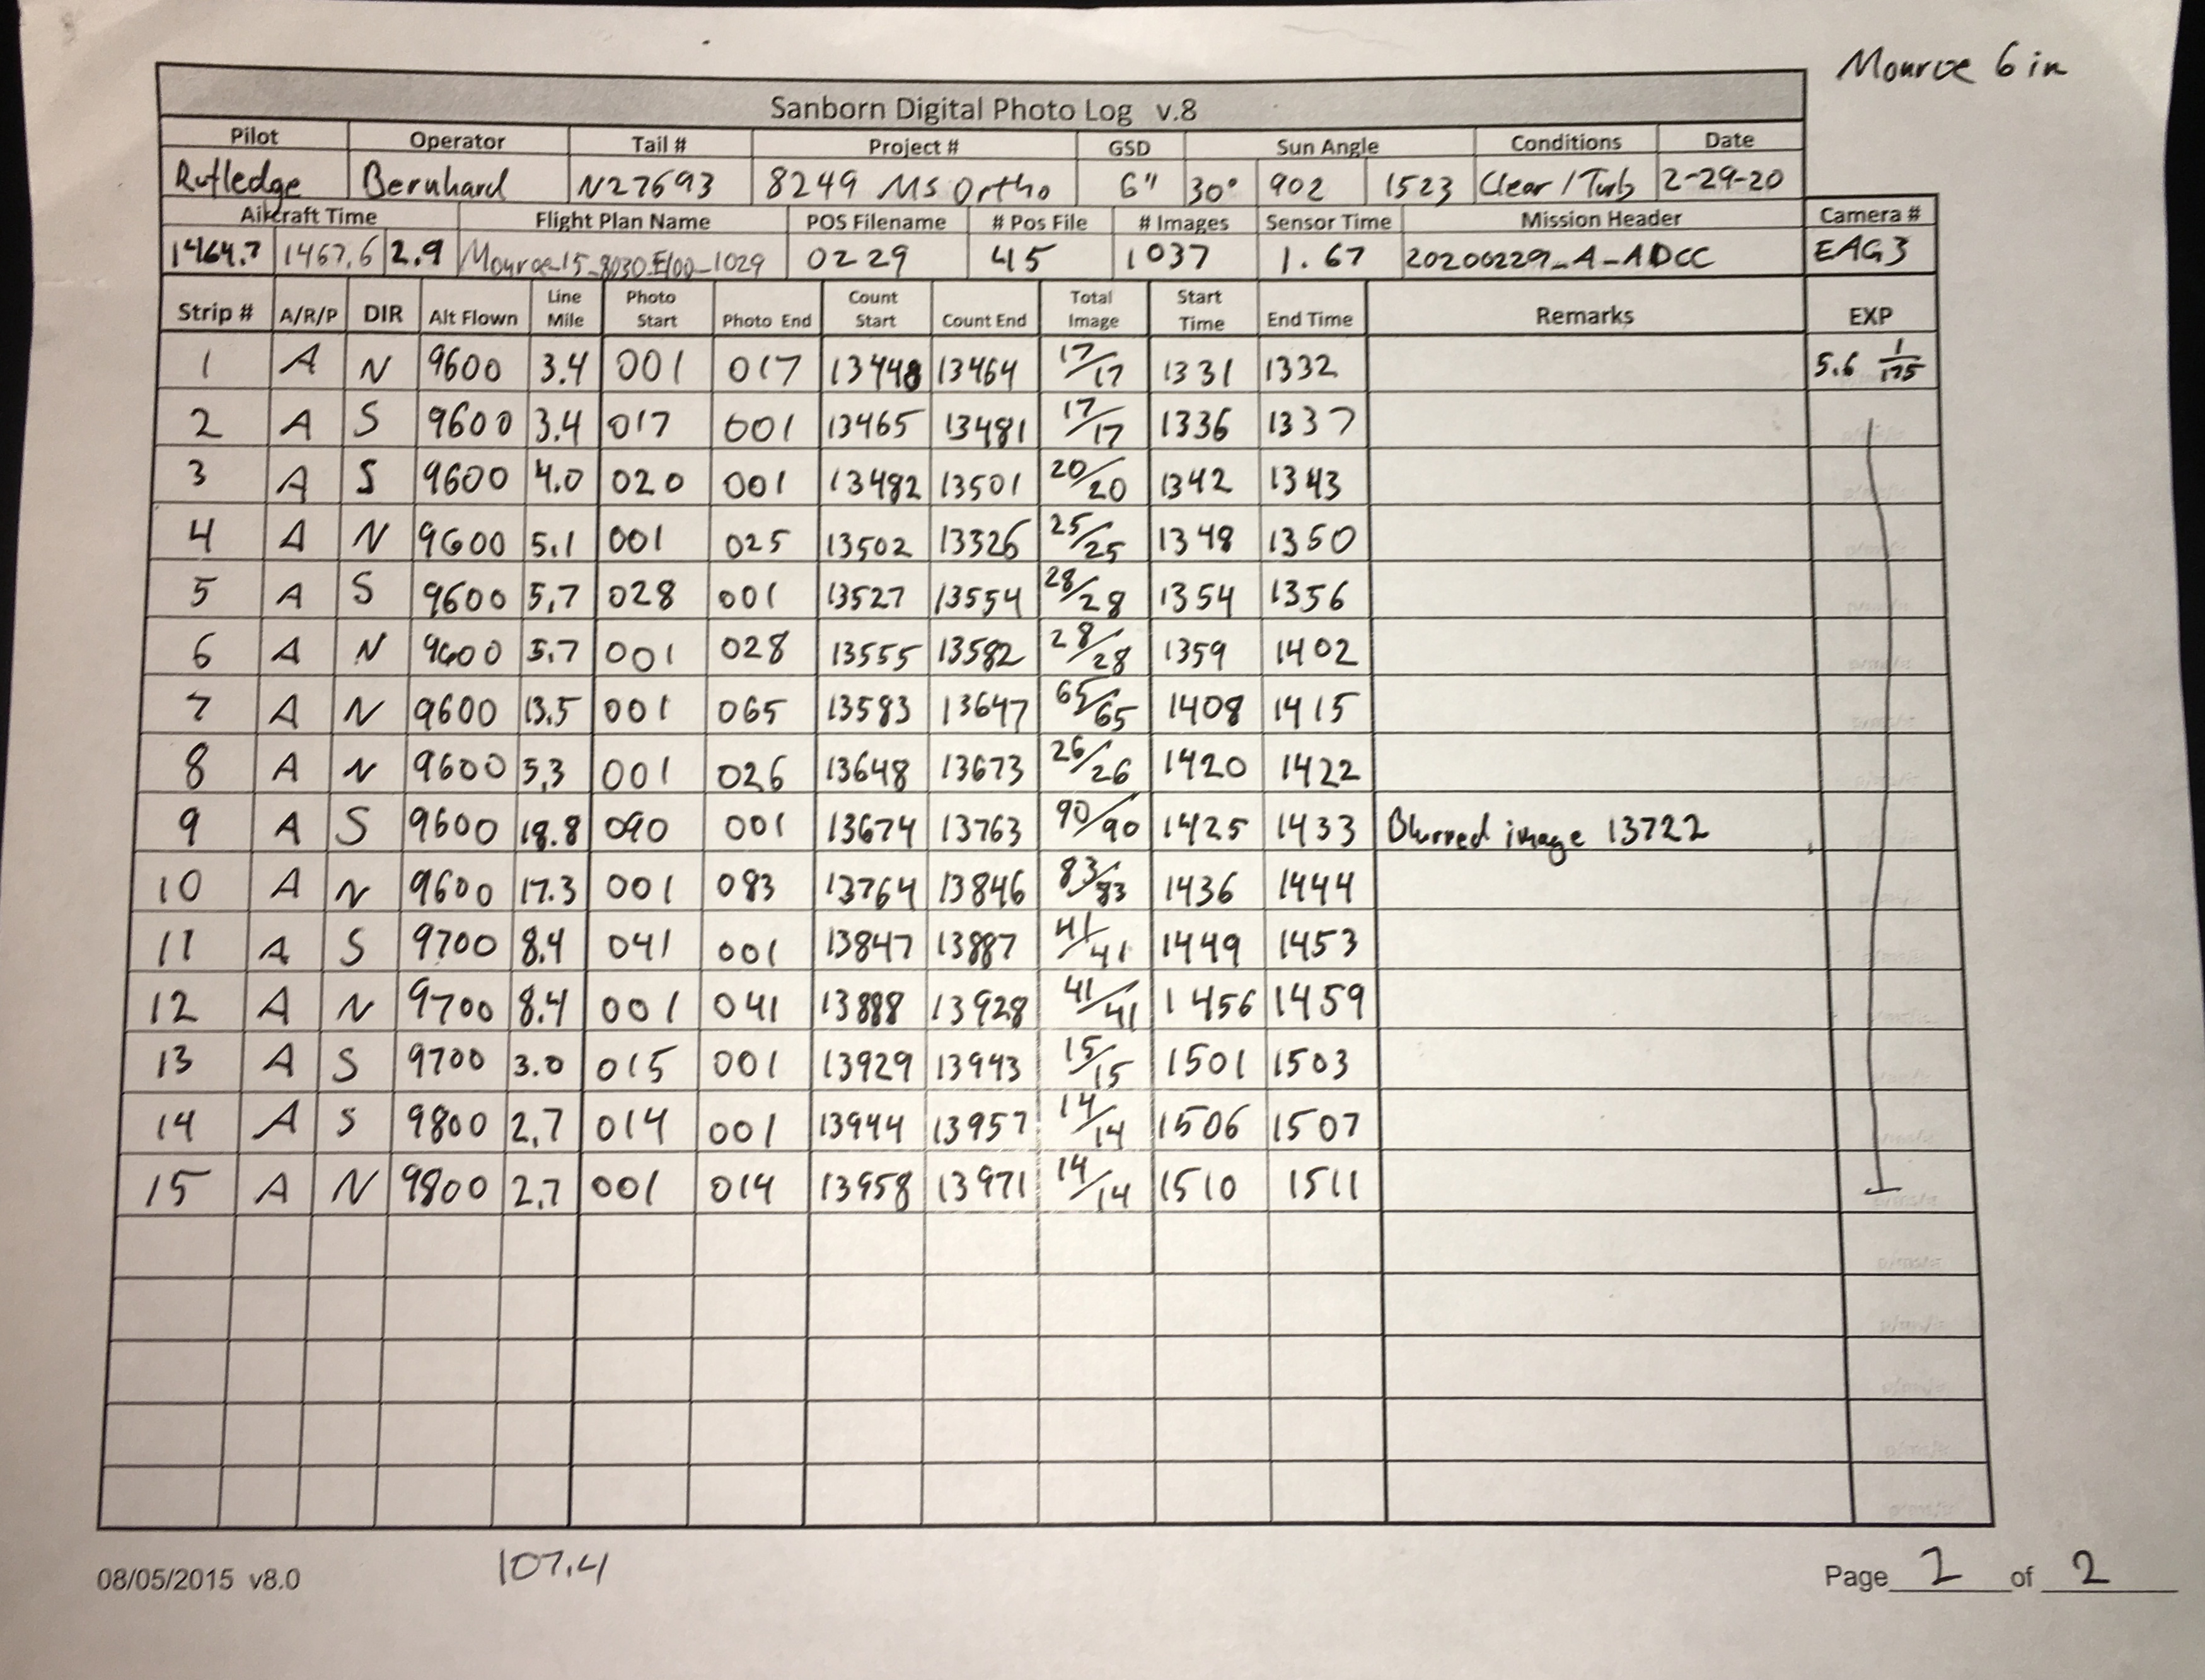 Monroe 6 in
Sanborn Digital Photo Log v.8
Pilot Operator Tail # Project # GSD Sun Angle Conditions Date
Rutledge Bernhard N27693 8249 MS Ortho 6" 30° 902 1523 Clear / Turb 2-29-20
Aircraft Time Flight Plan Name POS Filename # Pos File # Images Sensor Time Mission Header Camera #
1464.7 1467.6 2.9 Monroe_15_8030_E100_1029 0229 45 1037 1.67 20200229_A_ADCC EAG3
Strip # A/R/P DIR Alt Flown Line Mile Photo Start Photo End Count Start Count End Total Image Start Time End Time Remarks EXP
1 A N 9600 3.4 001 017 13448 13464 17/17 1331 1332 5.6 1/175
2 A S 9600 3.4 017 001 13465 13481 17/17 1336 1337
3 A S 9600 4.0 020 001 13482 13501 20/20 1342 1343
4 A N 9600 5.1 001 025 13502 13326 25/25 1348 1350
5 A S 9600 5.7 028 001 13527 13554 28/28 1354 1356
6 A N 9600 5.7 001 028 13555 13582 28/28 1359 1402
7 A N 9600 13.5 001 065 13583 13647 65/65 1408 1415
8 A N 9600 5.3 001 026 13648 13673 26/26 1420 1422
9 A S 9600 18.8 090 001 13674 13763 90/90 1425 1433 Blurred image 13722
10 A N 9600 17.3 001 083 13764 13846 83/83 1436 1444
11 A S 9700 8.4 041 001 13847 13887 41/41 1449 1453
12 A N 9700 8.4 001 041 13888 13928 41/41 1456 1459
13 A S 9700 3.0 015 001 13929 13943 15/15 1501 1503
14 A S 9800 2.7 014 001 13944 13957 14/14 1506 1507
15 A N 9800 2.7 001 014 13958 13971 14/14 1510 1511
08/05/2015 v8.0 107.4 Page 2 of 2